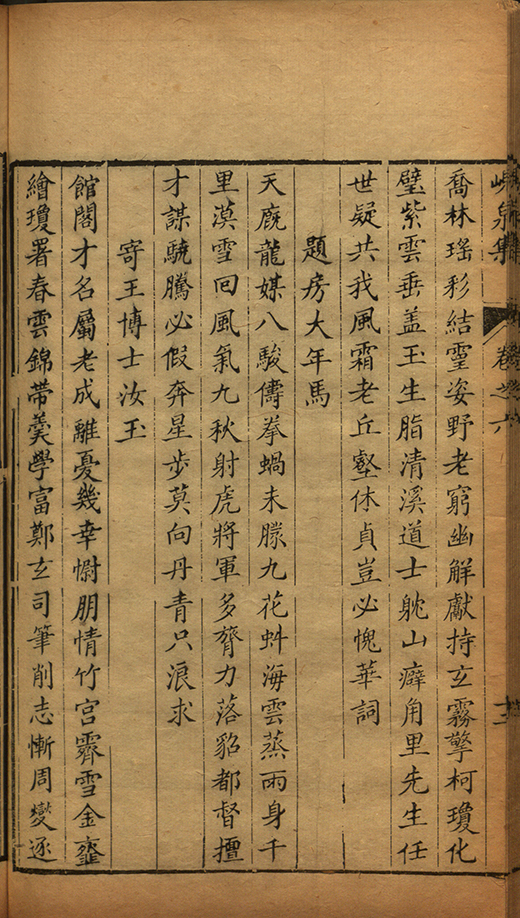 峴泉集 卷之六 十二
喬林瑤彩結靈姿野老窮幽解獻持玄霧擎柯瓊化
璧紫雲垂盖玉生脂清溪道士躭山癖角里先生任
世疑共我風霜老丘壑休貞豈必愧華詞
題房大年馬
天廐龍媒八駿傳拳蝸未朦九花虯海雲蒸雨身千
里漠雪回風氣九秋射虎將軍多膂力落貂都督擅
才謀驍騰必假奔星步莫向丹青只浪求
寄王博士汝玉
館閣才名屬老成離憂幾幸慰朋情竹宮霽雪金虀
繪瓊署春雲錦帶羹學富鄭玄司筆削志慚周燮逐